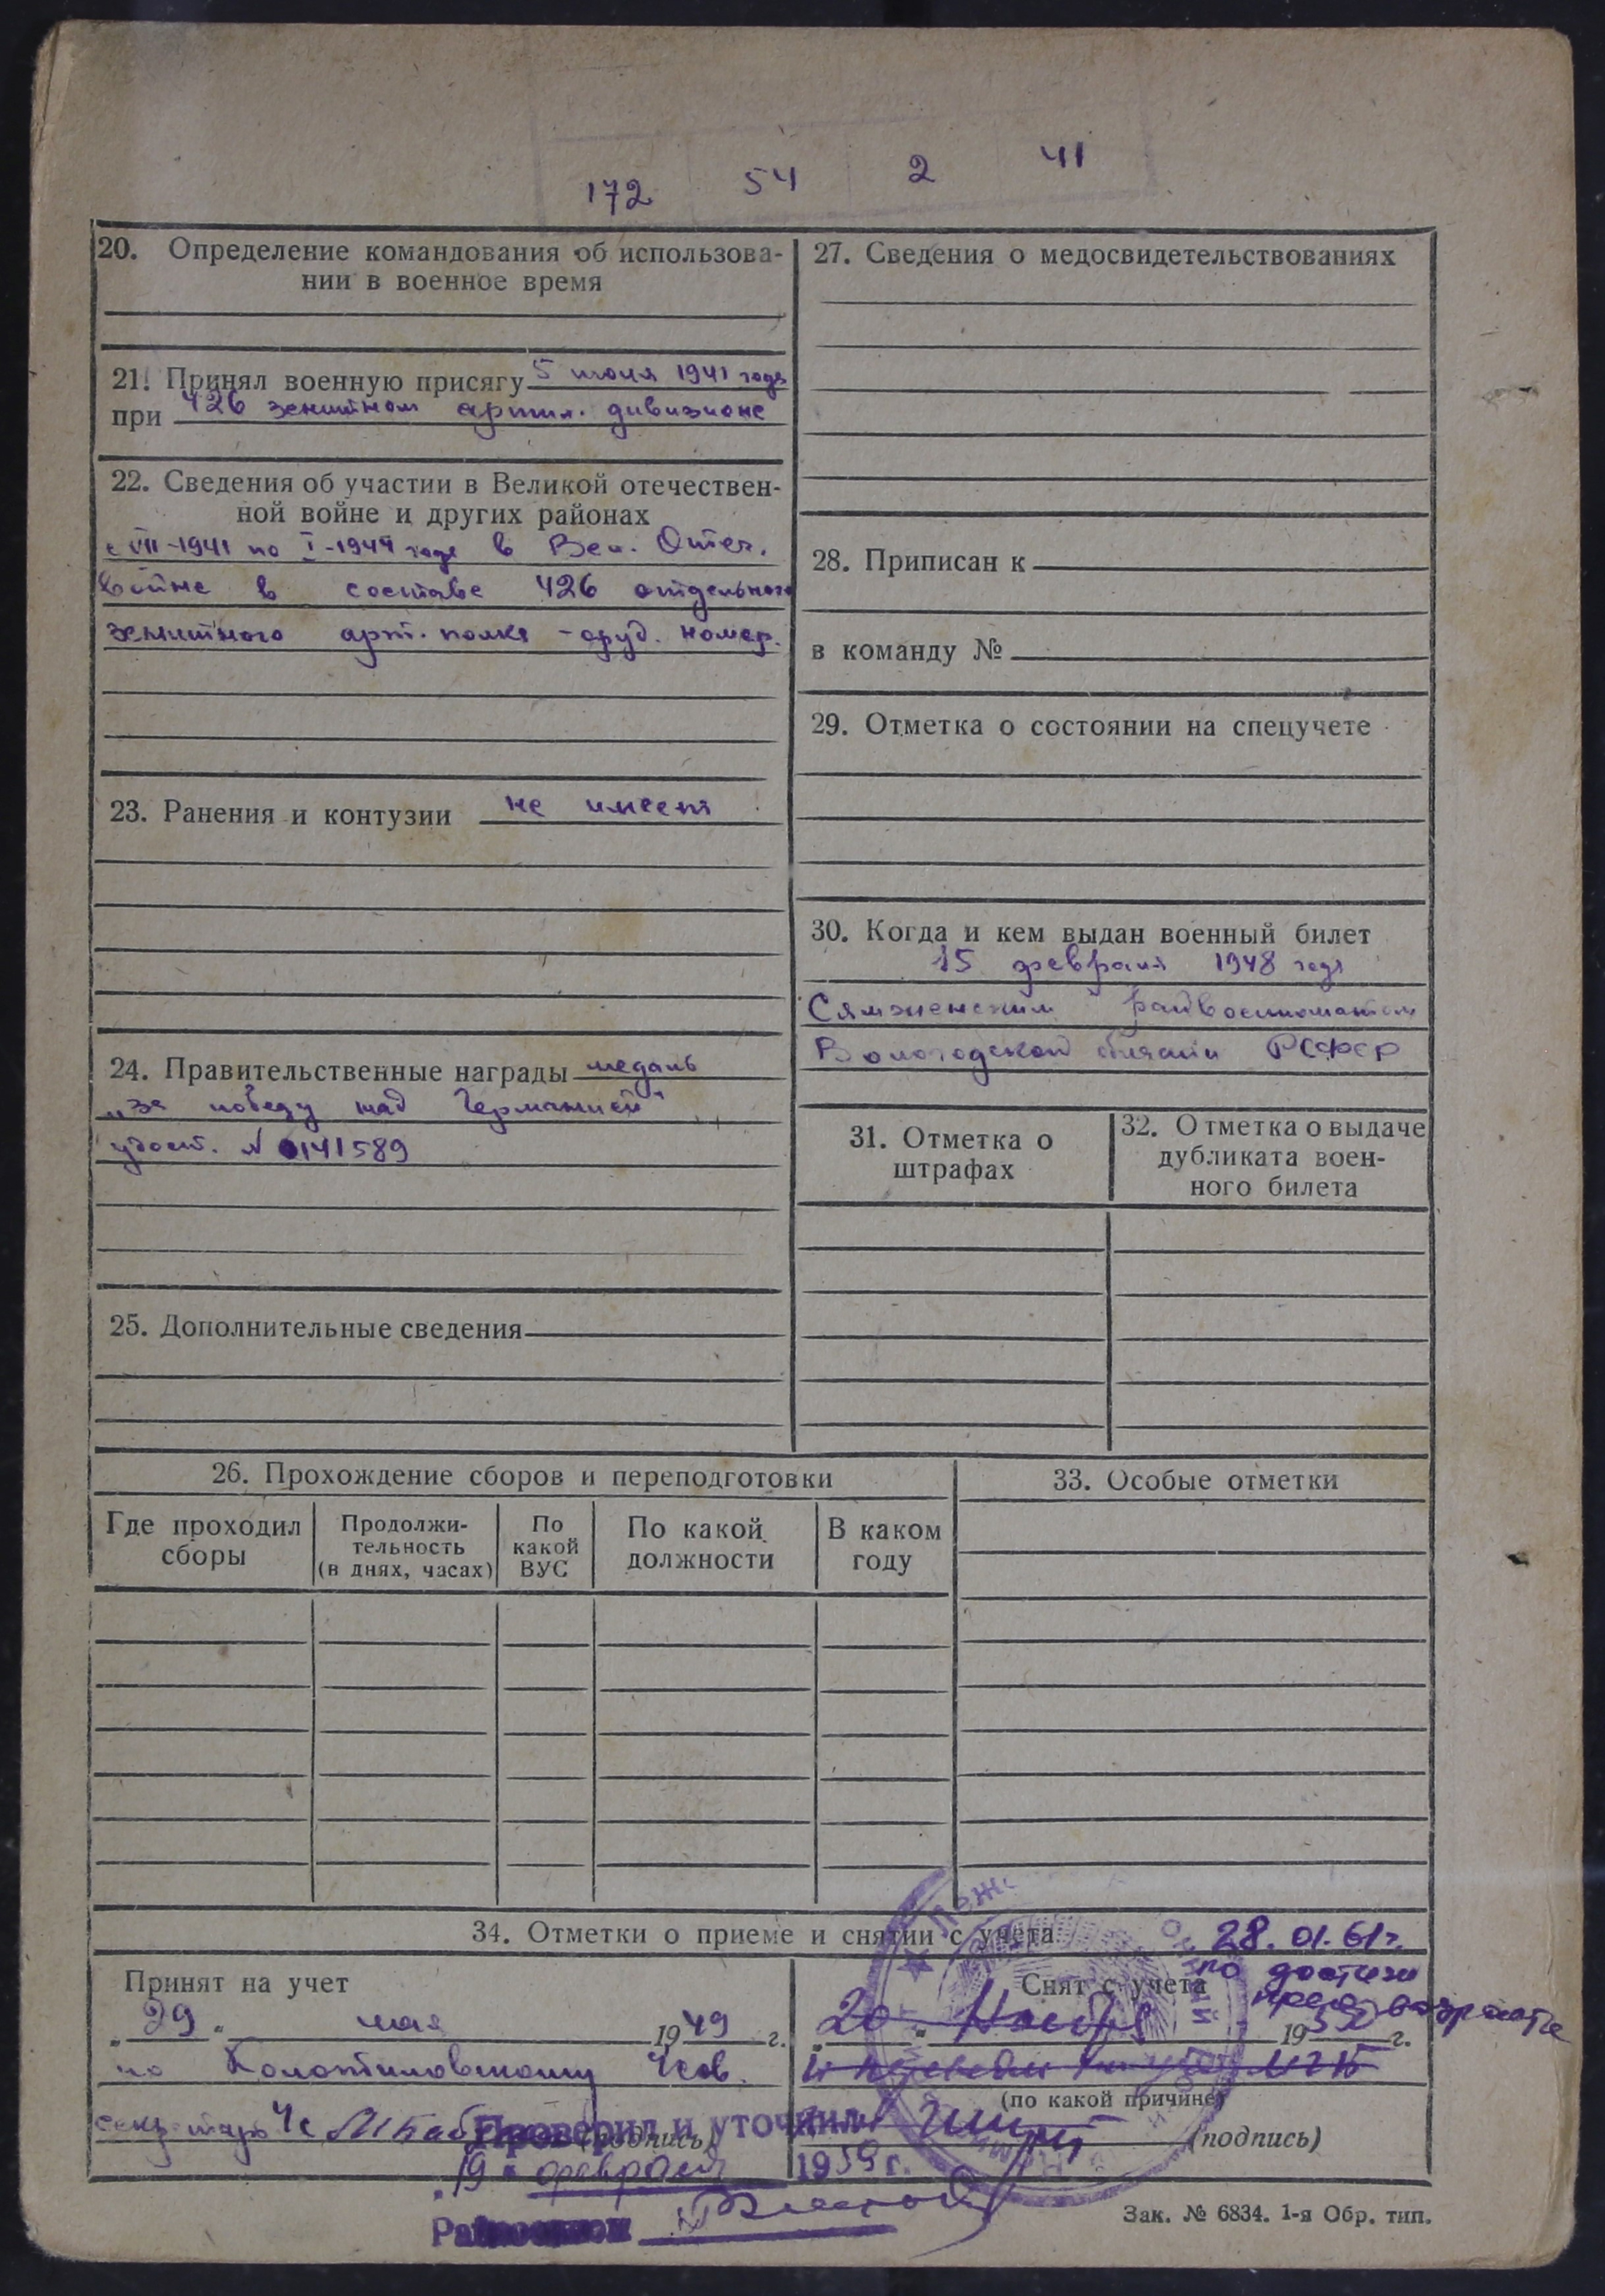 172 54 2 41
20. Определение командования об использова-
нии в военное время
21. Принял военную присягу 5 июля 1941 года
при 426 зенитном артил. дивизионе
22. Сведения об участии в Великой отечествен-
ной войне и других районах
с VII-1941 по I-1944 года в Вел. Отеч.
войне в составе 426 отдельного
зенитного арт. полка - оруд. номер.
23. Ранения и контузии не имеет
24. Правительственные награды медаль
"за победу над Германией"
удост. № 0141589
25. Дополнительные сведения
27. Сведения о медосвидетельствованиях
28. Приписан к
в команду №
29. Отметка о состоянии на спецучете
30. Когда и кем выдан военный билет
15 февраля 1948 года
Сямженским райвоенкоматом
Вологодской области РСФСР
31. Отметка о
штрафах
32. Отметка о выдаче
дубликата воен-
ного билета
26. Прохождение сборов и переподготовки
Где проходил
сборы
Продолжи-
тельность
(в днях, часах)
По
какой
ВУС
По какой
должности
В каком
году
33. Особые отметки
34. Отметки о приеме и снятии с учета
28.01.61 г.
Принят на учет
"29" мая 1949 г.
по Коноптиловскому
(подпись)
Снят с учета
по достижен
возраста
20 Ноября 19 г.
(по какой причине)
(подпись)
Проверил и уточнил
"19" февраля 1959 г.
Зак. № 6834. 1-я Обр. тип.